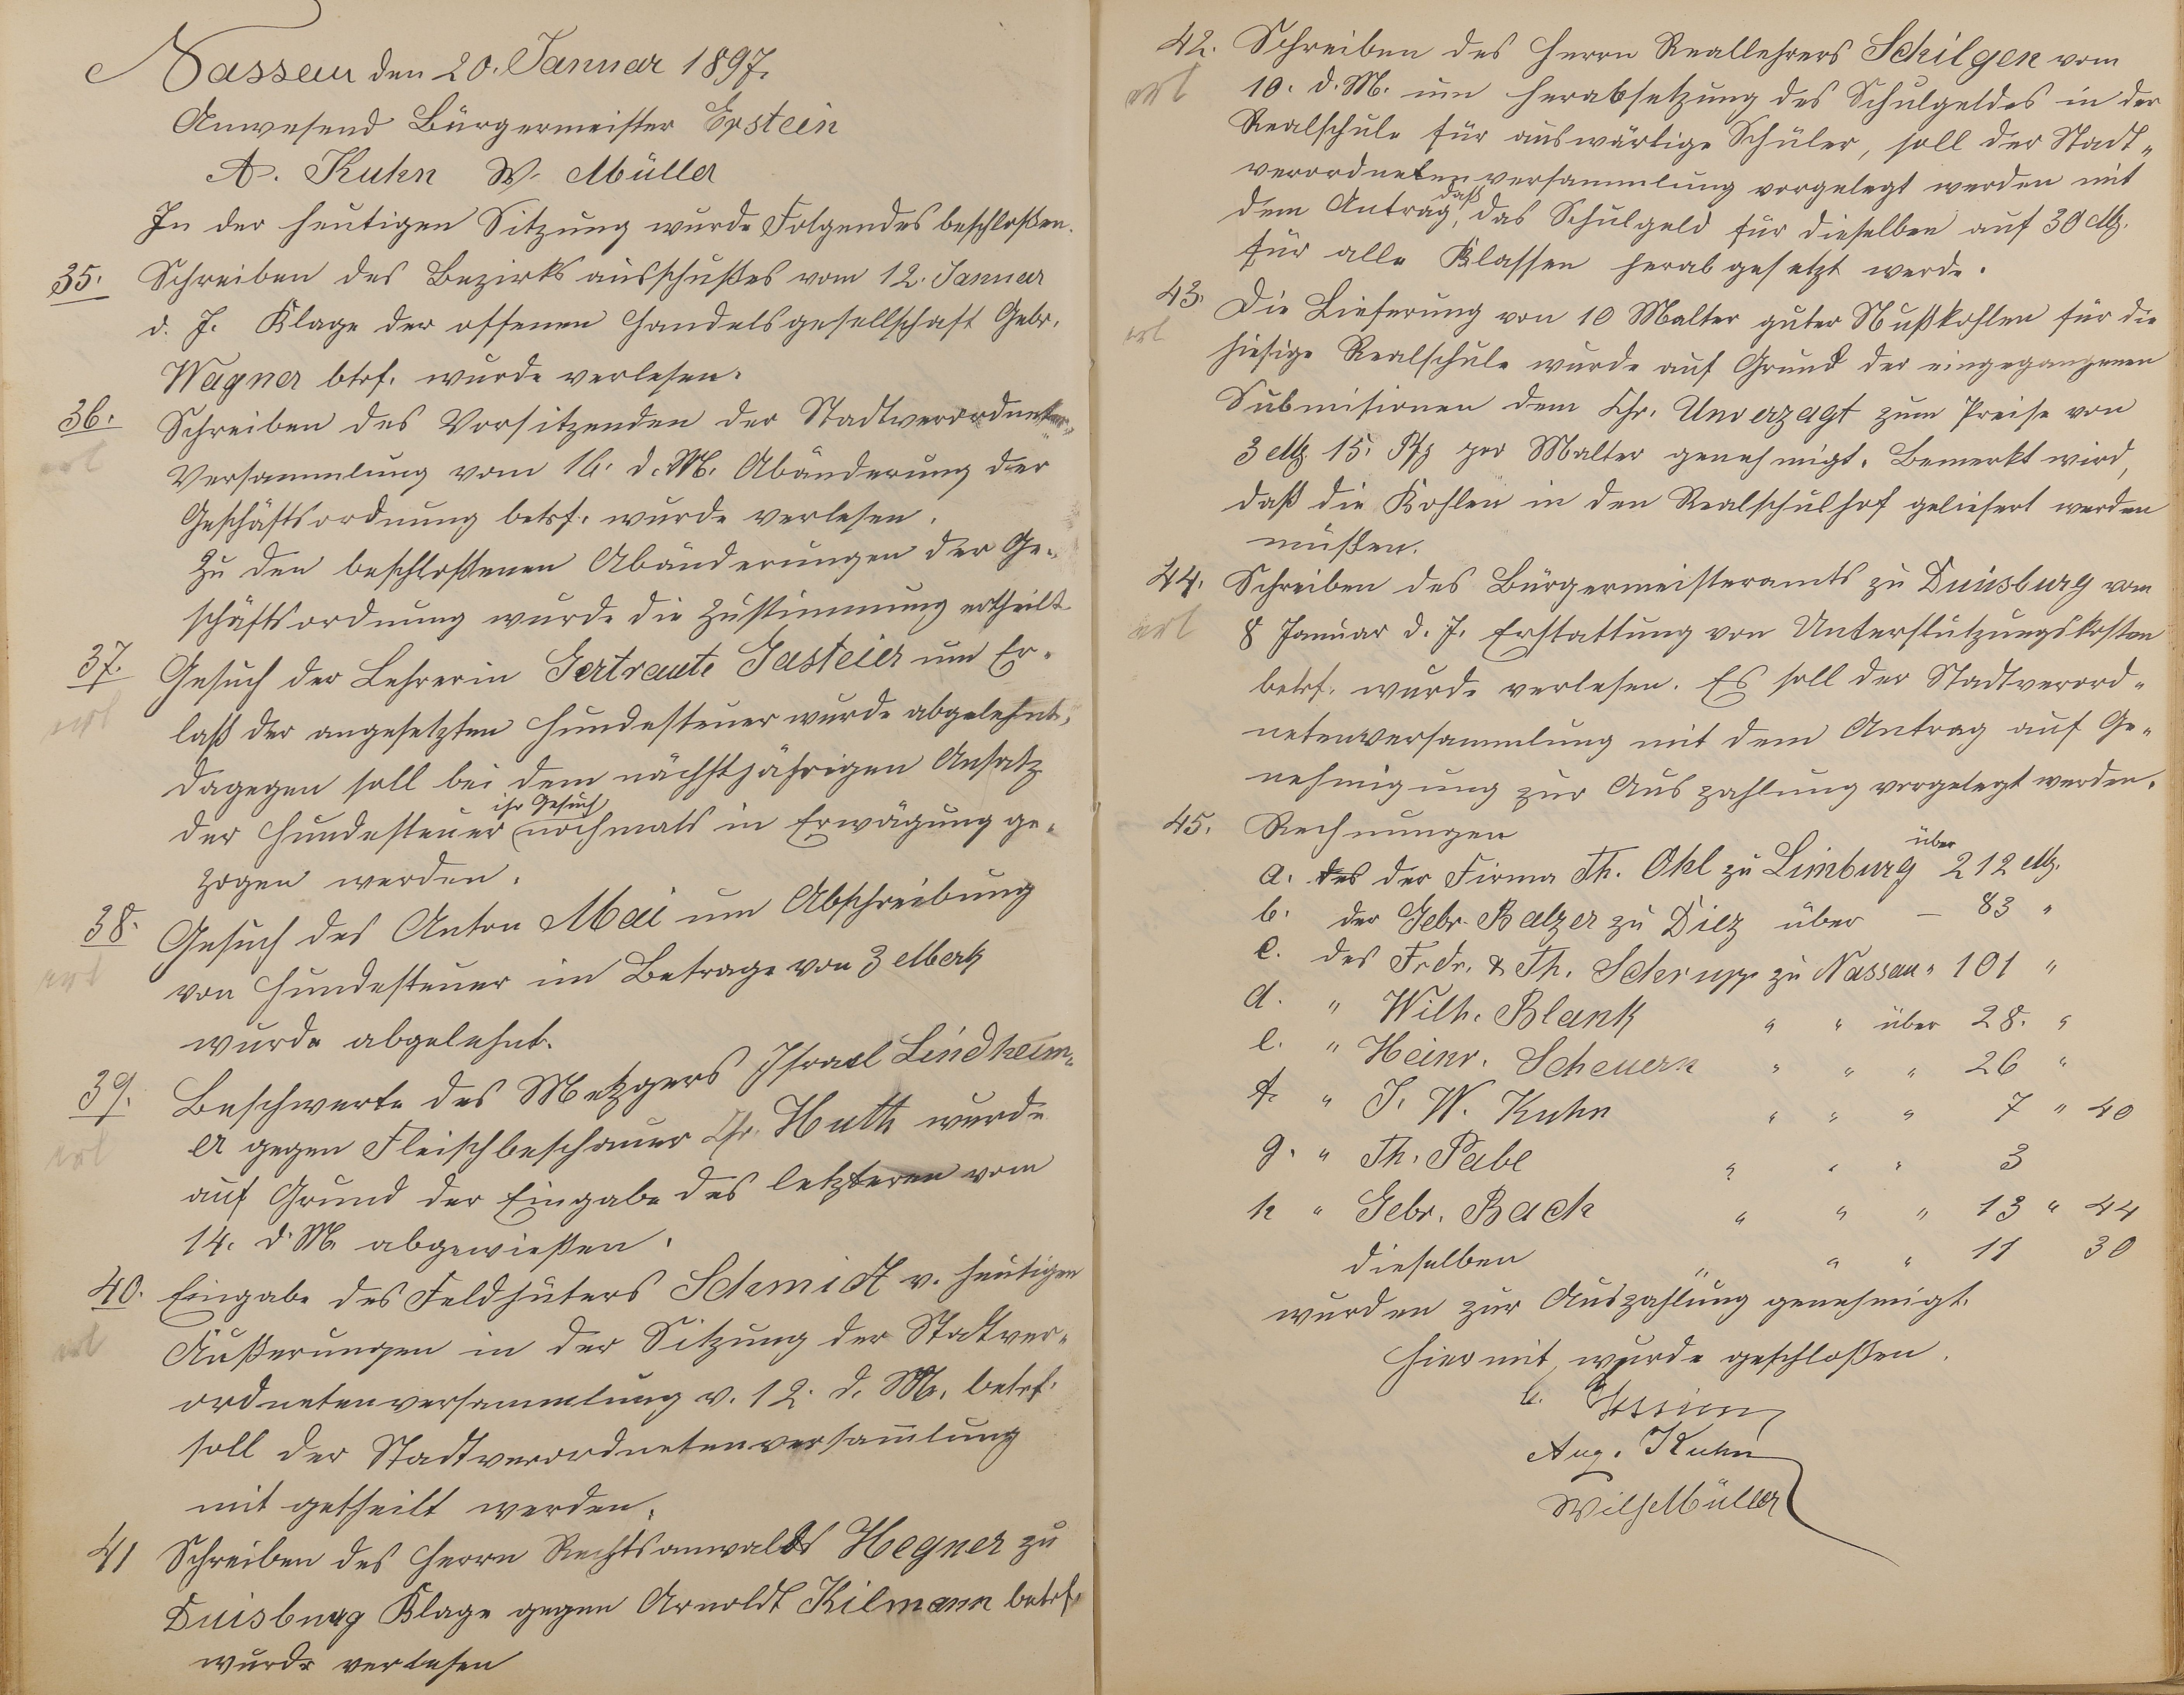 Nassau den 20. Januar 1897.
Anwesend Bürgermeister Epstein
A. Kuhn W. Müller
In der heutigen Sitzung wurde Folgendes beschloßen.
35. Schreiben des Bezirksausschußes vom 12. Januar
d. J. Klage der offenen Handelsgesellschaft Gebr.
Wagner btrf. wurde verlesen.
36. Schreiben des Vorsitzenden der Stadtverordneten-
erl
Versammlung vom 16. d. M. Abänderung der
Geschäftsordnung betrf. wurde verlesen.
Zu den beschloßenen Abänderungen der Ge-
schäftsordnung wurde die Zustimmung ertheilt
37. Gesuch der Lehrerin Gertraute Gasteier um Er-
erl
laß der angesetzten Hundesteuer wurde abgelehnt,
dagegen soll bei dem nächstjährigen Ansatz
ihr Gesuch
der Hundesteuer nochmals in Erwägung ge-
zogen werden.
38. Gesuch des Anton Mai um Abschreibung
erl
von Hundesteuer im Betrage von 3 Mark
wurde abgelehnt.
39. Beschwerte des Metzgers Israel Lindheim-
erl
er gegen Fleischbeschauer Chr. Huth wurde
auf Grund der Eingabe des letzteren vom
14. d. M. abgewießen.
40. Eingabe des Feldhüters Schmidt v. heutigen
erl
Äußerungen in der Sitzung der Stadtver-
ordnetenversammlung v. 12. d. M. betrf.
soll der Stadtverordnetenversam̅lung
mit getheilt werden.
41 Schreiben des Herrn Rechtsanwalds Hegner zu
Duisburg Klage gegen Arnoldt Kilmann betrf.
wurde verlesen
42. Schreiben des Herrn Reallehrers Schilgen vom
erl
10. d. M. um Herabsetzung des Schulgeldes in der
Realschule für auswärtige Schüler, soll der Stadt-
verordnetenversammlung vorgelegt werden mit
daß
dem Antrag, das Schulgeld für dieselben auf 30 M.
für alle Klassen herabgesetzt werde.
43. Die Lieferung von 10 Malter guter Nußkohlen für die
erl
hiesige Realschule wurde auf Grund der eingegangenen
Submisionen dem Chr. Unverzagt zum Preise von
3 M 15. Pfg per Malter genehmigt. Bemerkt wird,
daß die Kohlen in den Realschulhof geliefert werden
müßen.
44. Schreiben des Bürgermeisteramts zu Duisburg vom
erl
8 Januar d. J. Erstattung von Unterstützungskosten
betrf. wurde verlesen. Es soll der Stadtverord-
netenversammlung mit dem Antrag auf Ge-
nehmigung zur Auszahlung vorgelegt werden.
45. Rechnungen
über
a. des der Firma Th. Ohl zu Limburg 212 M.
b. der Gebr. Balzer zu Diez über — 83 "
c. des Frdr. & Th. Schrupp zu Nassau " 101 "
d. " Wilh. Blank " " über 28. "
e. " Heinr. Scheuern " " " 26 "
f. " J. W. Kuhn " " " 7 " 40
g. " Th. Pabe " " " 3
h " Gebr. Bach " " " 13 " 44
dieselben " " 11 30
wurden zur Auszahlung genehmigt.
Hiermit wurde geschloßen.
Aug. Kuhn
Wilh Müller